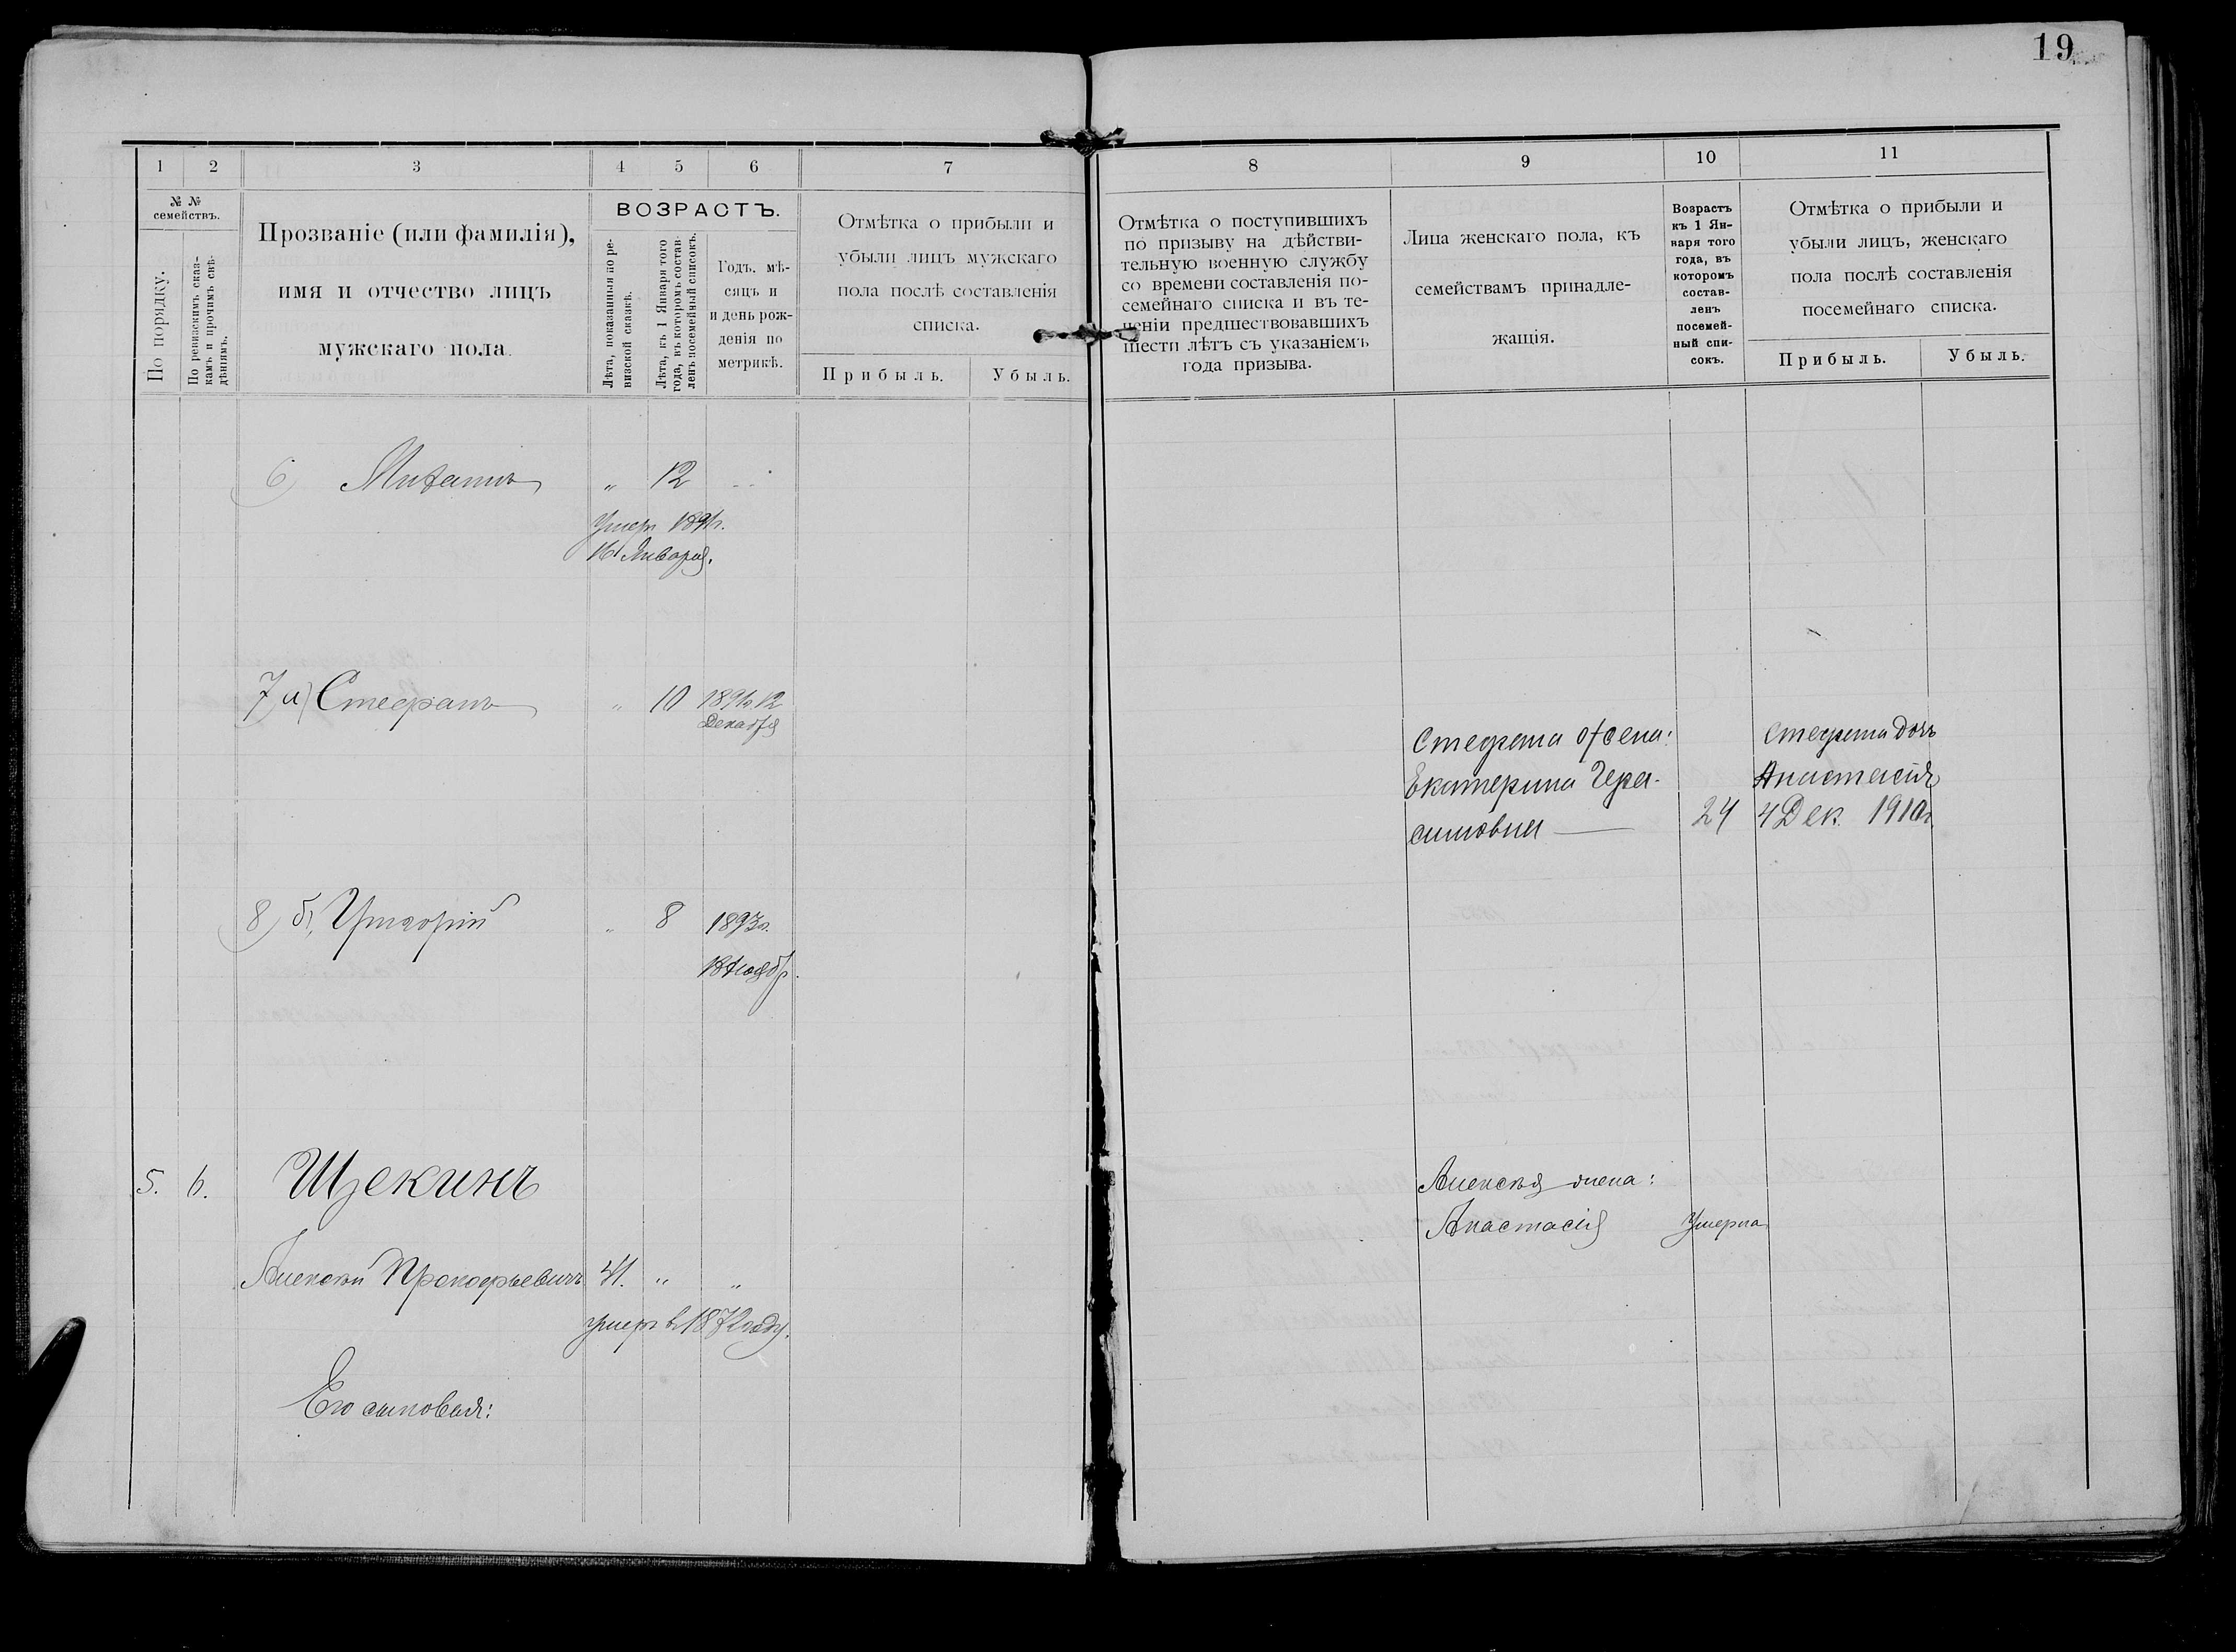 19
1 2 3 4 5 6 7
№ №
семействъ.
По порядку.
По ревизскимъ сказ-
камъ и прочимъ свѣ-
дѣніямъ.
Прозваніе (или фамилія),
имя и отчество лицъ
мужскаго пола
ВОЗРАСТЪ.
Лѣта, показанныя по ре-
визской сказкѣ.
Лѣта, къ 1 Января того
года, въ которомъ состав-
ленъ посемейный списокъ.
Годъ. мѣ-
сяцъ и
и день рож-
денія по
метрикѣ.
Отмѣтка о прибыли и
убыли лицъ мужскаго
пола послѣ составленія
списка.
Прибыль. Убыль.
6) " 12
Умеръ
16 Января.
7) а) Стефанъ " 10 12
Декабря
8) б) Григорій " 8 1893г.
5. 6. Щекинъ
Алексѣй Прокофьевичъ 41. " "
умеръ въ 1872 году.
Его сыновья:
8 9 10 11
Отмѣтка о поступившихъ
по призыву на дѣйстви-
тельную военную службу
со времени составленія по-
семейнаго списка и въ те-
ченіи предшествовавшихъ
шести лѣтъ съ указаніемъ
года призыва.
Лица женскаго пола, къ
семействамъ принадле-
жащія.
Возрастъ
къ 1 Ян-
варя того
года, въ
которомъ
состав-
ленъ
посемей-
ный спи-
сокъ.
Отмѣтка о прибыли и
убыли лицъ, женскаго
пола послѣ составленія
посемейнаго списка.
Прибыль. Убыль.
Стефана жена: Стефана дочь
Екатерина Гера- Анастасія
симовна — 24 4 Дек. 1910г.
Алексѣя жена:
Анастасія Умерла